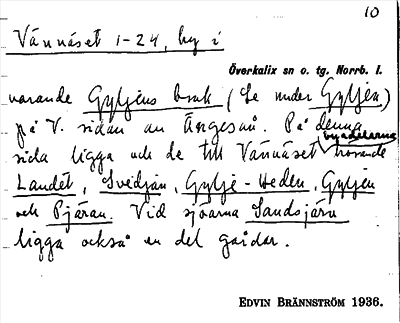 10
Vännäset 1-24, by i
Överkalix sn o. tg. Norrb. l.
varande Gyljens bruk (Se under Gyljen)
på V. sidan av Ängesån. På denna
byadelarna
sida ligga och de till Vännäset hörande
Landet, Svedjan, Gylje-Heden, Gyljen
och Pjäran. Vid sjöarna Sandsjärv
ligga också en del gårdar.
EDVIN BRÄNNSTRÖM 1936.